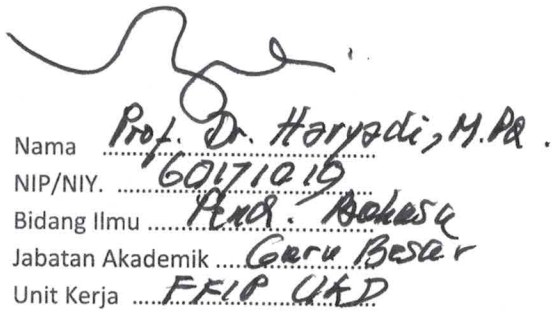 Nama Prof. Dr. Haryadi, M.Pd.
NIP/NIY. 60171019
Bidang Ilmu Pend. Bahasa
Jabatan Akademik Guru Besar
Unit Kerja